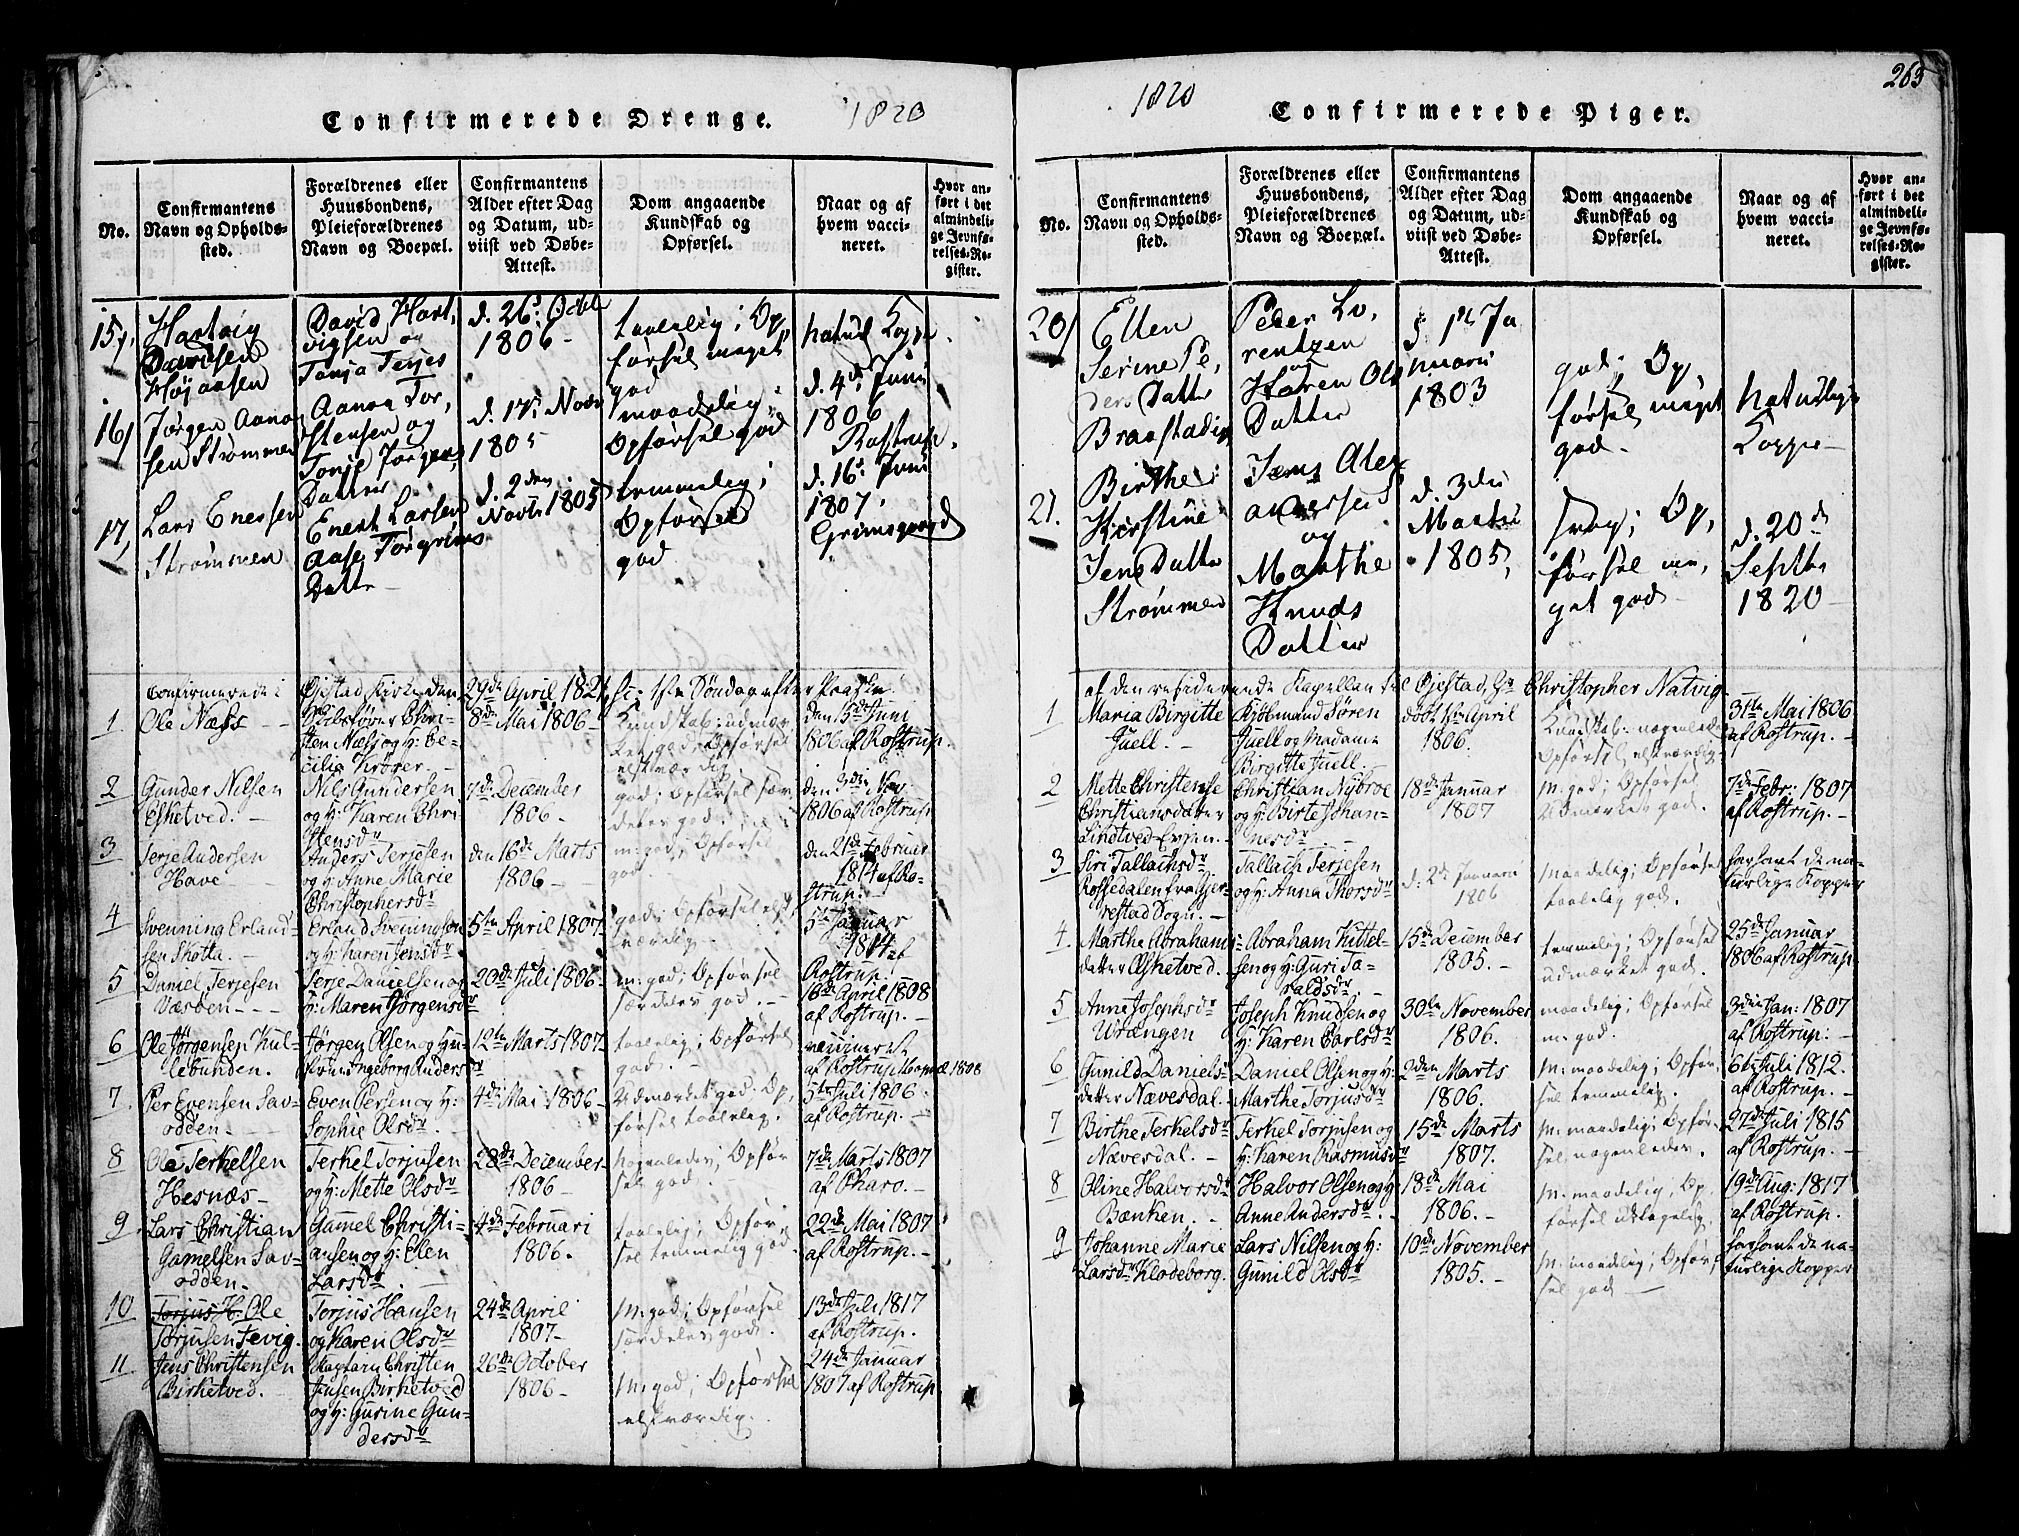 Confirmerede Drenge. 1820
No.
Confirmantens
Navn og Opholds-
sted.
Forældrenes eller
Huusbondens,
Pleieforældrenes
Navn og Boepæl.
Confirmantens
Alder efter Dag
og Datum, ud-
viist ved Døbe-
Attest.
Dom angaaende
Kundskab og
Opførsel.
Naar og af
hvem vacci-
neret.
Hvor an-
ført i det
almindeli-
ge Jevnfø-
relses-Re-
gister.
15,
Hartvig
Davidsen
Højaasen
David Hart,
vigsen og
Tonja Terjes
d. 26d Octb
1806 -
taalelig; Op,
førsel meget
god
naturl Kopper
16,
Jørgen Aanon
sen Strømmen
Aanon Tor,
stensen og
Tonje Jørgens,
Datter
d. 17d Novb
1805
maadelig;
Opførsel god
d. 4de Juni
1806
Rostrup.
17,
Lars Enersen
Strømmen
Enert Larsen
Aase Torgrims
Datter -
d. 2den
Novb 1805
temmelig;
Opførsel
god
d. 16d Juni
1807
Grimsgaard
Confirmerede i Øjestad Kirke den 29de April 1821, sc: 1ste Søndag efter Paaske
1
Ole Næss - -
Skibsfører Chri-
sten Næss og H: Ce-
cilia Krøger. -
8de Mai 1806 -
Kundskab: udmær
ket god; Opførsel
elskværdig
den 15de Juni
1806 af Rostrup.
2
Gunder Nilsen
Esketved. -
Nils Gundersen
og H: Karen Chri
stensdr
7de December
1806. -
god; Opførsel sær
deles god.
den 3die Nov:
1806 af Rostrup
3
Terje Andersen
Have -
Anders Terjesen
og H: Anne Marie
Christophersdr
den 16de Marts
1806 -
m: god; Opførsel
god.
den 21de Februar
1814 af Ro-
strup: -
4
Svenning Erland-
sen Skotta. -
Erland Svenningsen
og H: Karen Jensdr
5te April 1807.
god; Opførsel elsk
værdig.
5te Januar
1814 af
Rostrup.
5
Daniel Terjesen
Væsben - - -
Terje Danielsen og
H: Maren Jørgensdr
20de Juli 1806 -
m: god; Opførsel
særdeles god. -
16de April 1808
af Rostrup. -
6
Ole Jørgensen Kul-
lebunden. -
Jørgen Olsen og Hu-
stru Ingeborg Andersdr
12te Marts 1807
taalelig; Opførsel
god. -
vaccineret
af Rostrup 1808
7
Per Evensen Sav-
odden. -
Even Persen og H:
Sophie Olsdr. -
4de Mai 1806 -
Udmærket god. Op,
førsel taalelig.
5te Juli 1806
af Rostrup. -
8
Ole Terkelsen
Hesnæs -
Terkel Torjusen
og H: Mette Olsdr
28de December
1806 -
nogenledes; Opfør
sel god.
7de Marts 1807
af Pharo. -
9
Lars Christian
Gamelsen Sav-
odden. -
Gamel Christi-
ansen og H: Elen
Larsdr. -
4de Februari
1806. -
taalelig; Opfør,
sel temmelig god.
22de Mai 1807
af Rostrup. -
10
Torjus H. Ole
Torjusen Fevig.
Torjus Hansen
og Karen Olsdr
24de April
1807 -
M: god; Opførsel
særdeles god.
13de Juli 1817
af Rostrup.
11
Jens Christensen
Birketved. -
Christen
Jensen Birketved
og H: Gurine Gun-
dersdr
26de October
1806 -
M: god; Opførsel
elskværdig.
24de Januar
1807 af Rostrup
1820 Confirmerede Piger. 263
No.
Confirmantens
Navn og Opholds-
sted.
Forældrenes eller
Huusbondens,
Pleieforældrenes
Navn og Boepæl.
Confirmantens
Alder efter Dag
og Datum, ud-
viist ved Døbe-
Attest.
Dom angaaende
Kundskab og
Opførsel.
Naar og af
hvem vacci-
neret.
Hvor an-
ført i det
almindeli-
ge Jevnfø-
relses-Re-
gister.
20,
Ellen
Serine Pe,
ders Datter
Braastad
Peder Lo,
rentzen
og
Karen Ols
Datter
d. 1ste Ja
nuarii
1803
god; Op,
førsel meget
god -
naturlige
Kopper -
21.
Birthe
Kirstine
Jens Datter
Strømmen
Jens Alex
andersen
og
Marthe
Knuds
Datter
d. 3die
Martii
1805,
svag; Op,
førsel me,
get god -
d. 20de
Septbr
1820 -
af den residerende Kapellan til Øjestad, Hr Christopher Natvig.
1
Maria Birgitte
Juell. -
Kjøbmand Søren
Juell og Madame
Birgitte Juell.
døbt 1ste April
1806.
Kundskab: nogenledes
Opførsel elskværdig
31te Mai 1806
af Rostrup. -
2
Mette Christense
Christiansdatter
Lindtved
Christian Nybroe
og H: Birte Johan-
nesdr
18de Januar
1807
M: god; Opførsel
Udmærket god.
7de Febr: 1807
af Rostrup. -
3
Siri Tallachsdr
Rossedalen fra Gjer-
restad Sogn. -
Tallach Terjesen
og H: Anna Thorsdr
d: 2de Januari
1806
Maadelig; Opførsel
taalelig god.
havt de na-
turlige Kopper
4
Marthe Abraham
datter Æsketved.
Abraham Kittel-
sen og H: Guri Ta-
raldsdr. -
15de December
1805. -
temmelig; Opførsel
udmærket god.
25de Januar
1806 af Rostrup.
5
Anne Josephsdr
Utrængen
Joseph Knudsen og
H: Karen Carlsdr
30te November
1806.
maadelig; Opførsel
m: god.
3die Jan: 1807
af Rostrup: -
6
Gunild Daniels-
datter Nævesdal. -
Daniel Olsen og H:
Marthe Torjusdr
2den Marts
1806.
M: maadelig; Opfør,
sel temmelig.
6te Juli 1812.
af Rostrup. -
7
Birthe Terkelsdr
Nævesdal. -
Terkel Torjusen og
H: Karen Rasmusdr
15de Marts
1807.
M: maadelig; Opfør-
sel nogenledes.
27de Juli 1815
af Rostrup. -
8
Oline Halvorsdr
Bænken. -
Halvor Olsen og H:
Anne Andersdr. -
18de Mai
1806. -
M: maadelig; Op,
førsel
19de Aug: 1817
af Rostrup.
9
Johanne Marie
Larsdr Klodeborg.
Lars Nilsen og H:
Gunild Olsdr
10de November
1805. -
M: maadelig; Opfør,
sel god -
havt de na-
turlige Kopper